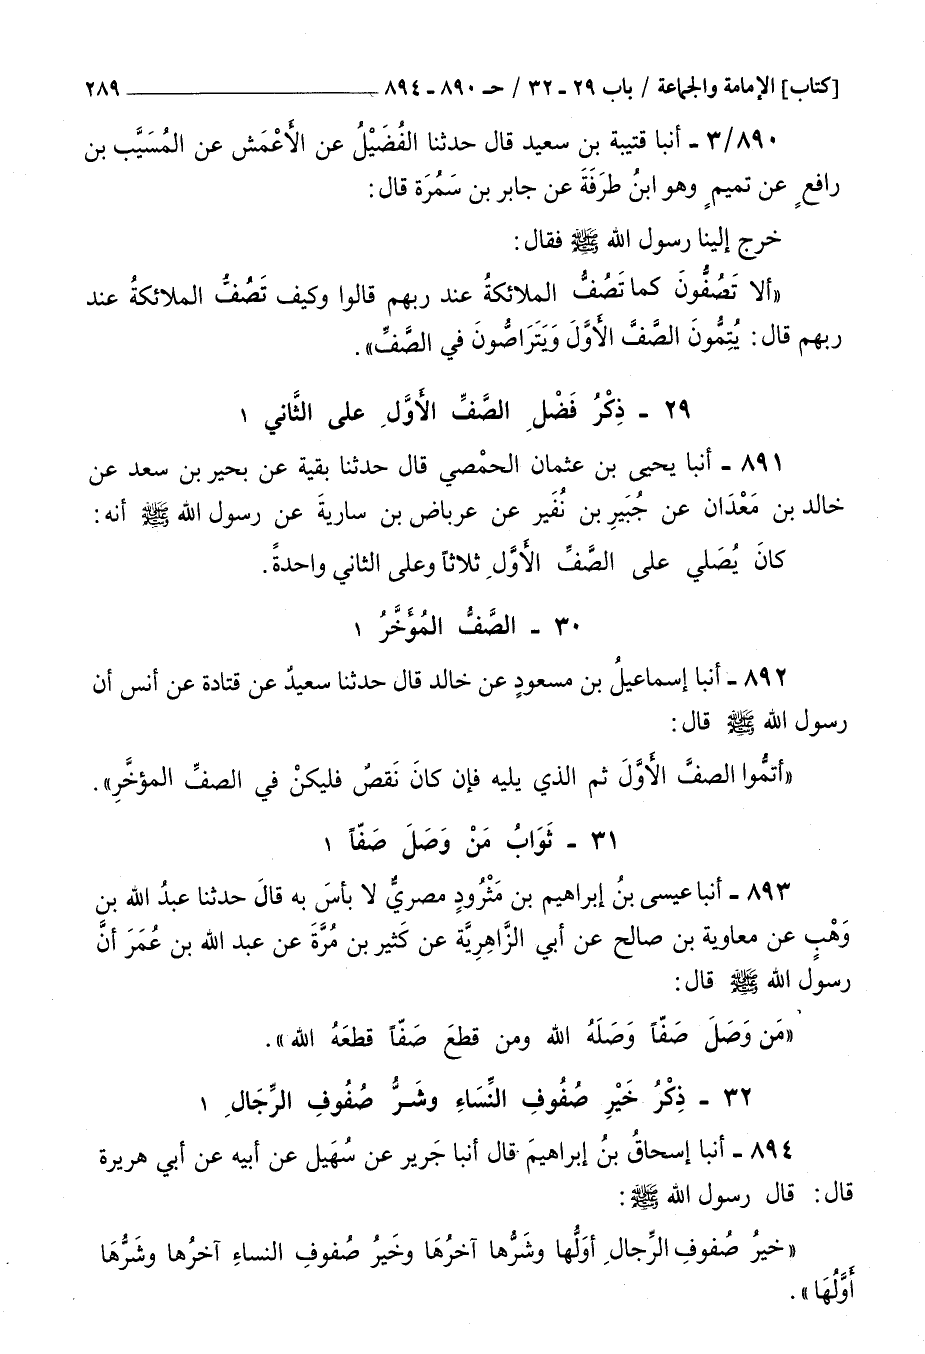 [كتاب] الإمامة والجماعة / باب ٢٩ ـ ٣٢ / حـ ٨٩٠ ـ ٨٩٤ ٢٨٩
٣/٨٩٠ ـ أنبا قتيبة بن سعيد قال حدثنا الفُضَيْلُ عن الأَعْمَش عن المُسَيَّب بن
رافعٍ عن تميمٍ وهو ابنُ طرَفَةَ عن جابر بن سَمُرَة قال:
خرج إلينا رسول الله ﷺ فقال:
«ألا تَصُفُّونَ كما تَصُفُّ الملائكةُ عند ربهم قالوا وكيف تَصُفُّ الملائكةُ عند
ربهم قال: يُتِمُّونَ الصَّفَّ الأَوَّلَ وَيَتَرَاصُّونَ في الصَّفِّ».
٢٩ ـ ذِكْرُ فَضْلِ الصَّفِّ الأَوَّلِ على الثَّاني ١
٨٩١ ـ أنبا يحيى بن عثمان الحمْصي قال حدثنا بقية عن بحير بن سعد عن
خالد بن مَعْدَان عن جُبَيرِ بن نُفَير عن عرباض بن ساريةَ عن رسول الله ﷺ أنه:
كانَ يُصَلي على الصَّفِّ الأَوَّلِ ثلاثاً وعلى الثاني واحدةً.
٣٠ ـ الصَّفُّ المُؤَخَّرُ ١
٨٩٢ ـ أنبا إسماعيلُ بن مسعودٍ عن خالد قال حدثنا سعيدٌ عن قتادة عن أنس أن
رسول الله ﷺ قال:
«أتمُّوا الصفَّ الأَوَّلَ ثم الذي يليه فإن كانَ نَقصٌ فليكنْ في الصفِّ المؤخَّرِ».
٣١ ـ ثَوَابُ مَنْ وَصَلَ صَفّاً ١
٨٩٣ ـ أنبا عيسى بنُ إبراهيم بن مَثْرُودٍ مصريٌّ لا بأسَ به قالَ حدثنا عبدُ الله بن
وَهْبٍ عن معاوية بن صالح عن أبي الزَّاهِرِيَّة عن كثير بن مُرَّةَ عن عبد الله بن عُمَرَ أنَّ
رسول الله ﷺ قال:
«مَن وَصَلَ صَفّاً وَصَلَهُ الله ومن قطعَ صَفّاً قطعَهُ الله».
٣٢ ـ ذِكْرُ خَيْرِ صُفُوفِ النِّسَاءِ وشَرُّ صُفُوفِ الرِّجَالِ ١
٨٩٤ ـ أنبا إسحاقُ بنُ إبراهيمَ قال أنبا جَرير عن سُهَيل عن أبيه عن أبي هريرة
قال: قال رسول الله ﷺ:
«خيرُ صُفوفِ الرِّجالِ أوَلُّها وشَرُّها آخرُهَا وخَيرُ صُفوفِ النساءِ آخرُها وشَرُّهَا
أَوَّلُهَا».